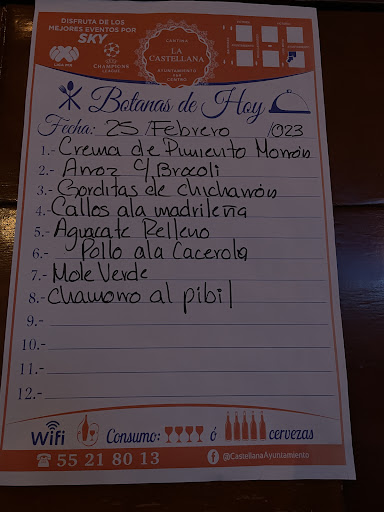 DISFRUTA DE LOS
MEJORES EVENTOS POR
SKY
LIGA MX
CHAMPIONS
LEAGUE
CANTINA
LA
CASTELLANA
AYUNTAMIENTO
CENTRO
Botanas de Hoy
Fecha: 25 Febrero /023
1.- Crema de Pimiento Morrón
2.- Arroz c/ Brocoli
3.- Gorditas de chicharrón
4.- Callos ala madrileña
5.- Aguacate Relleno
6.- Pollo ala Cacerola
7.- Mole Verde
8.- Chamorro al pibil
9.-
10.-
11.-
12.-
Wifi Consumo: ó cervezas
55 21 80 13 @CastellanaAyuntamiento